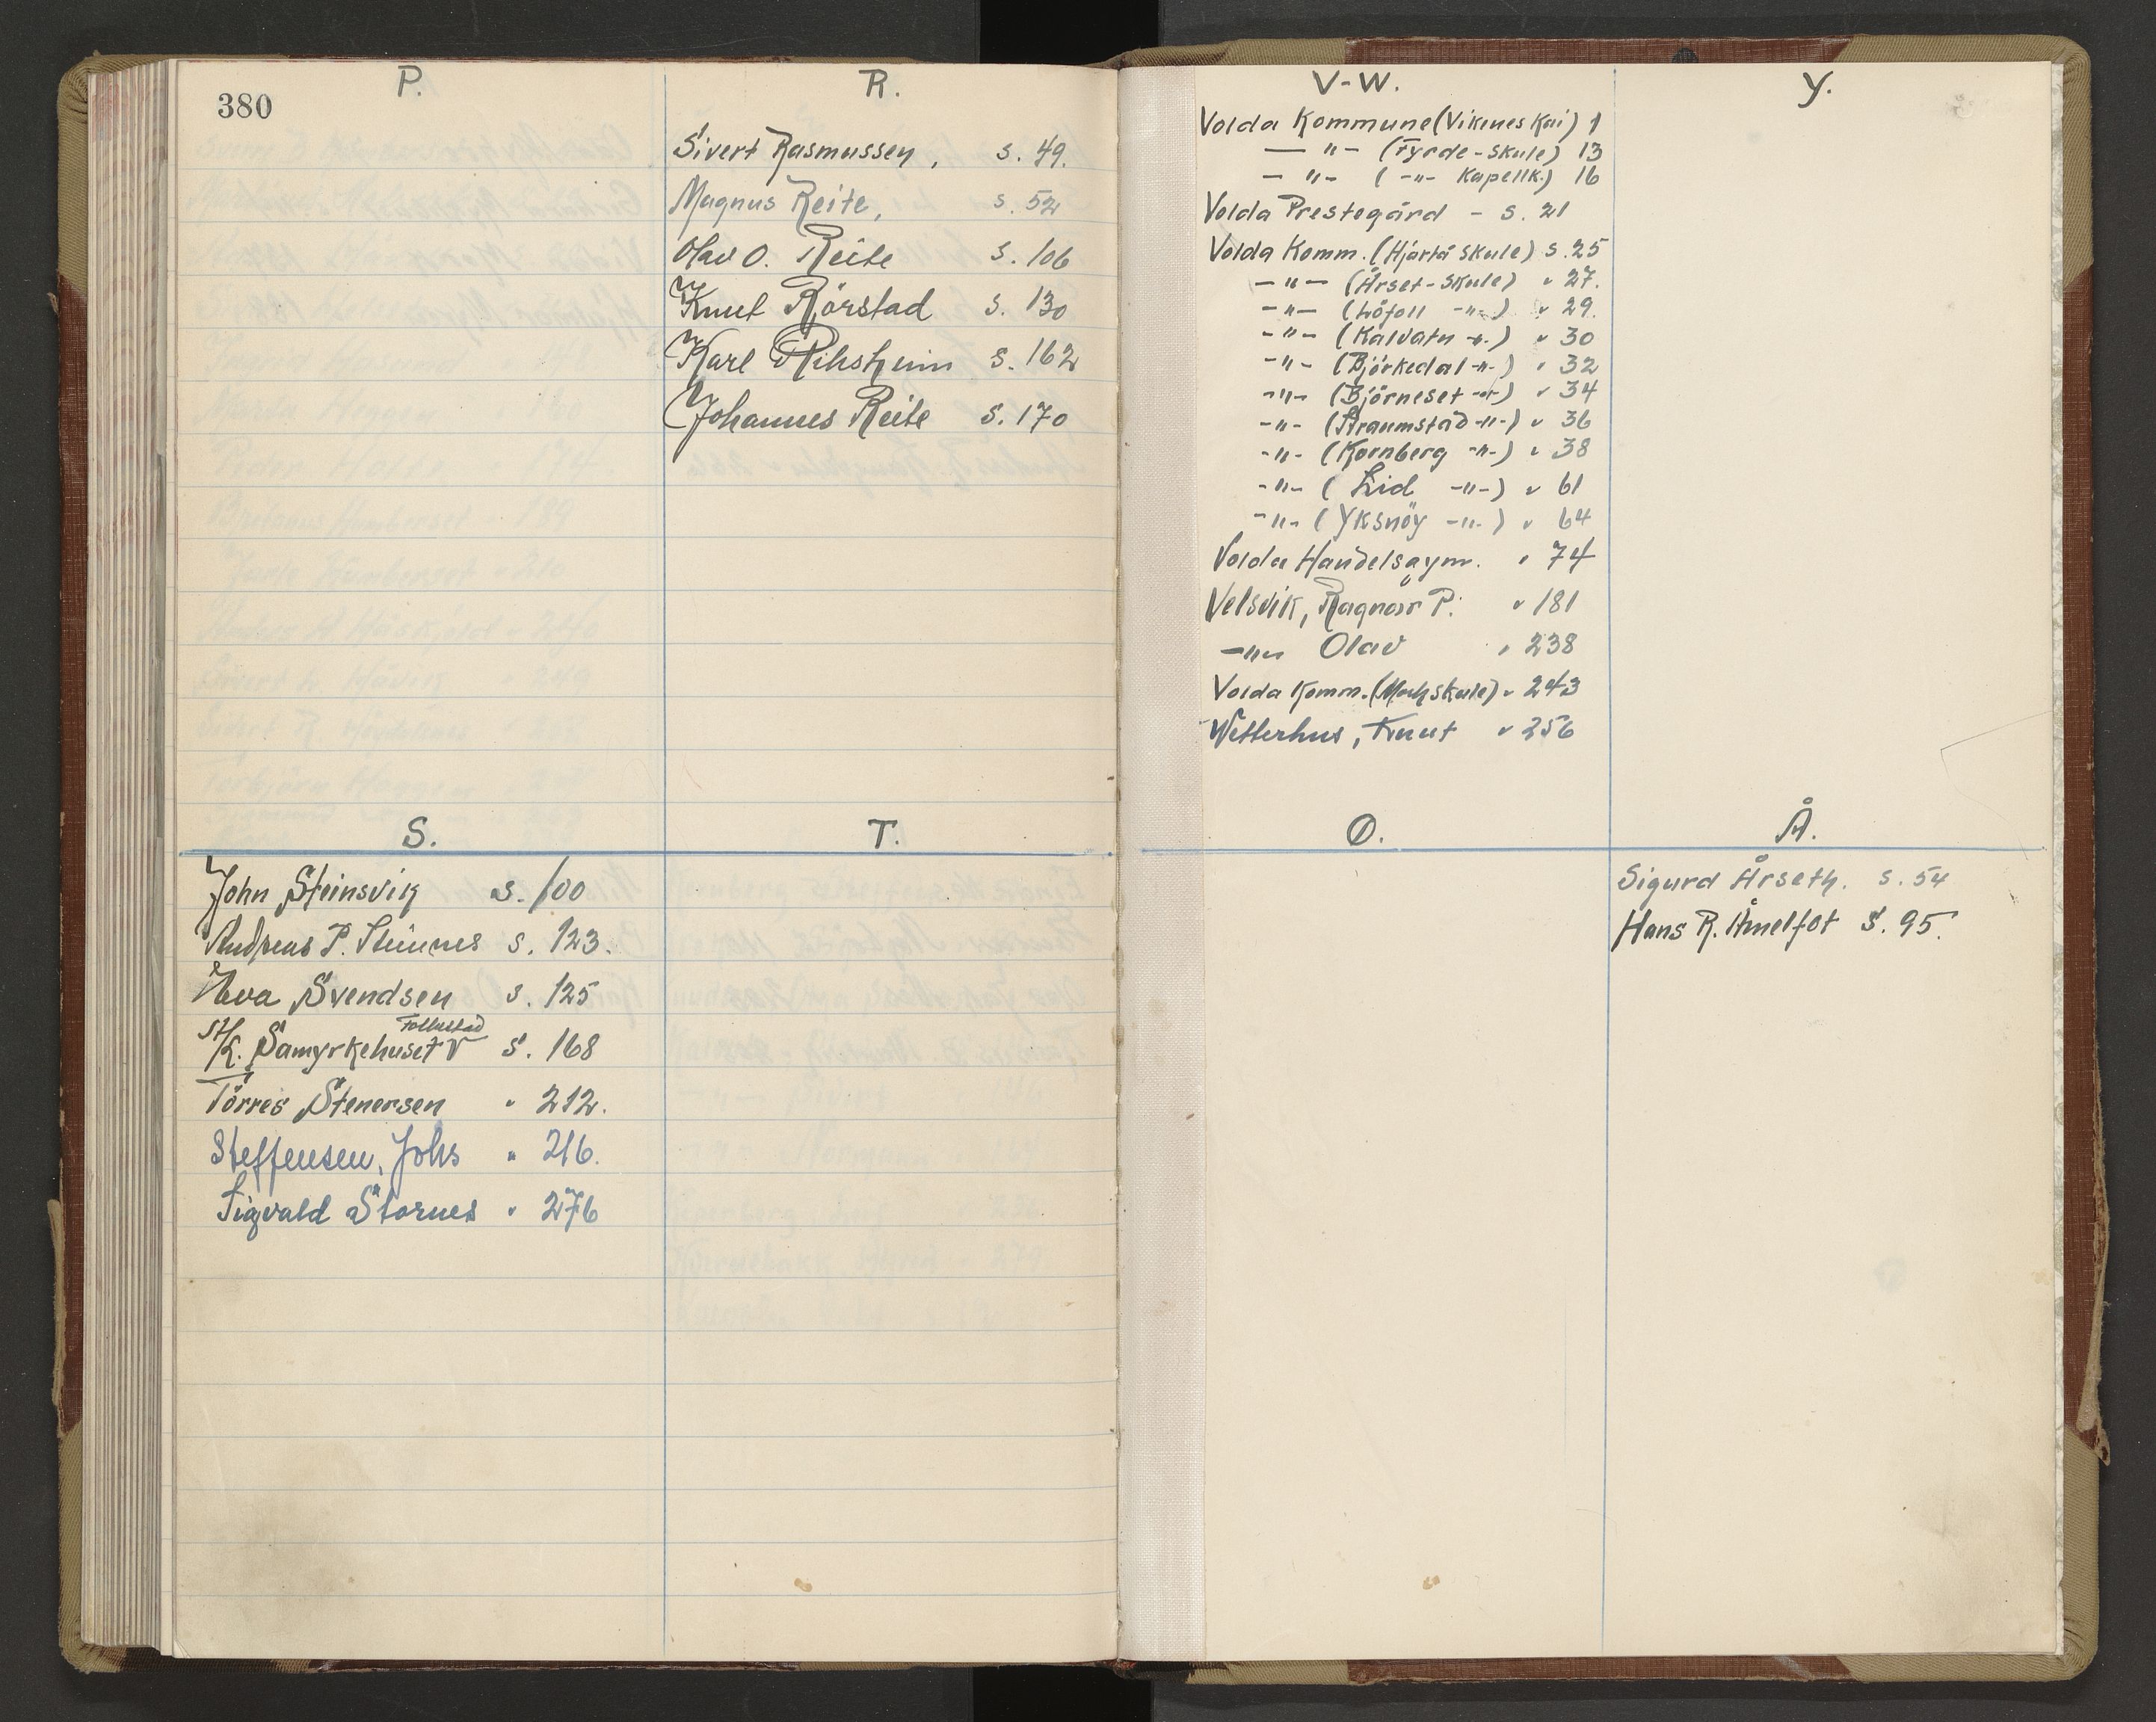 380
P.
R.
Sivert Rasmussen, s. 49.
Magnus Reite, s. 52
Olav O. Reite s. 106
Knut Rörstad s. 130
Karl s. 162
Johannes Reite s. 170
S.
John Steinsvik s. 100
Andreas P. Steinnes s. 123.
Eva Svendsen s. 125
Folkestad
Samyrkehuset V s. 168
Törres Stenersen " 212.
Steffensen, Johs " 216.
Sigvald Stornes " 276
T.
V-W.
Volda Kommune (Vikenes Kai) 1
— " — (Fyrde-Skule) 13
— " — ( -"- Kapellk.) 16
Volda Prestegård - s. 21
Volda Komm. (Hjartå Skule) s. 25
— " — (Årset-Skule) " 27.
- " — (Löfoll -"-) " 29.
- " - (Kalvatn -"-) " 30
- " - (Björkedal -"-) " 32
- " - (Björneset -"-) " 34
- " - (Straumstad -"-) " 36
- " - (Kornberg -"-) " 38
- " - (Lid -"-) " 61
- " - (Yksnöy -"-) " 64
Volda Handelsgym. " 74
Velsvik, Ragnar P. " 181
— " — Olav " 238
Volda Komm. (Mork skule) " 243
Wetterhus, Knut " 256
Y.
Ø.
Å.
Sigurd Årseth. s. 54
Hans R. Åmelfot S. 95.